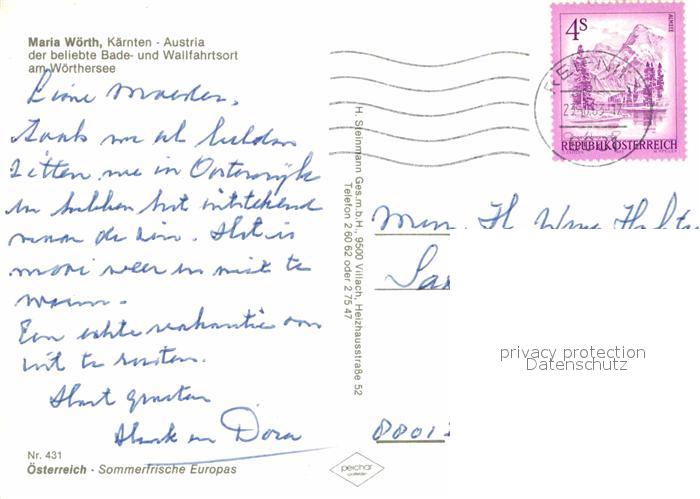 Maria Wörth, Kärnten - Austria
der beliebte Bade- und Wallfahrtsort
am Wörthersee
Zoals we al
zitten we in Oostenrijk
en hebben het uitstekend
naar de zin. Het is
mooi weer en niet te
warm.
Een echte vakantie om
uit te rusten.
Hart. groeten
Henk en Dora
Nr. 431
Österreich - Sommerfrische Europas
H. Steinmann Ges.m.b.H., 9500 Villach, Heizhausstraße 52
Telefon 2 60 62 oder 2 75 47
perchar
4S
ALMSEE
REPUBLIK ÖSTERREICH
privacy protection
Datenschutz